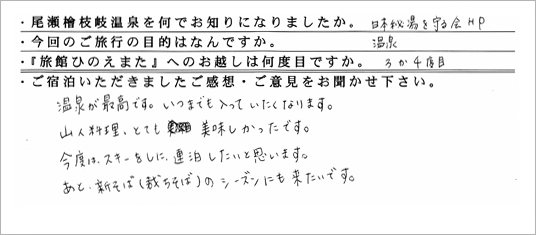 ・尾瀬檜枝岐温泉を何でお知りになりましたか。 日本秘湯を守る会HP
・今回のご旅行の目的はなんですか。 温泉
・『旅館ひのえまた』へのお越しは何度目ですか。 3か4度目
・ご宿泊いただきましたご感想・ご意見をお聞かせ下さい。
温泉が最高です。いつまでも入っていたくなります。
山人料理、とても美味しかったです。
今度は、スキーをしに、連泊したいと思います。
あと、新そば(裁ちそば)のシーズンにも来たいです。